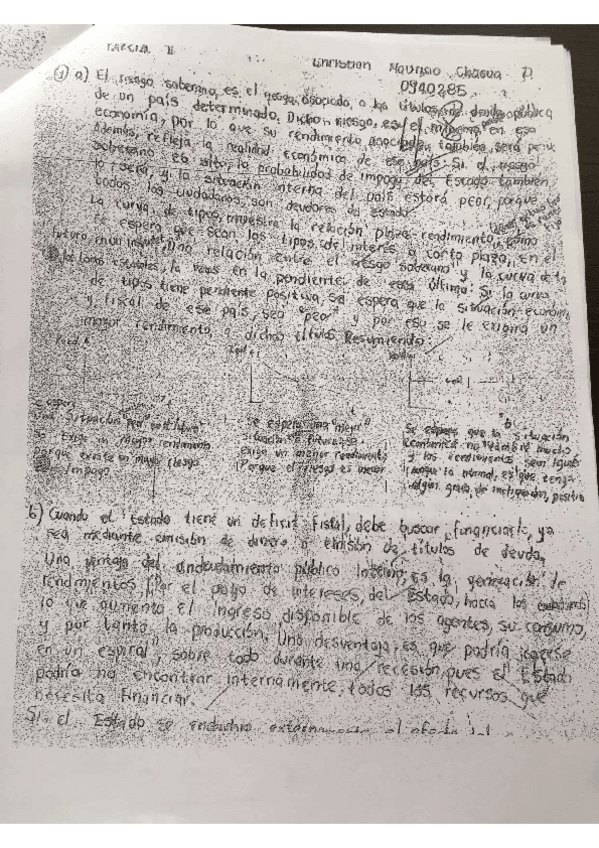 PARCIAL II
Christian Mauricio Chacua P.
0940285
1) a) El riesgo soberano, es el riesgo asociado, a los títulos de deuda pública
de un país determinado. Dicho riesgo, es el mínimo en esa
economía, por lo que su rendimiento asociado, también, será
Además, refleja la realidad económica de ese país. Si el riesgo
soberano es alto, la probabilidad de impago del Estado también
lo sería, y la situación interna del país estará peor, porque
todos los ciudadanos, son deudores del estado.
La curva de tipos, muestra la relación plazo-rendimiento, cómo
se espera que sean los tipos de interés a corto plazo, en el
futuro, relación entre el riesgo soberano y la curva de
la ves en la pendiente de esta última. Si la curva
de tipos tiene pendiente positiva, se espera que la situación económ
y fiscal de ese país, sea "peor" y por eso se le exigirá un
mayor rendimiento a dichos títulos. Resumiendo:
Se espera una "mejor" situación futura, se
exige un menor rendimiento
Porque el riesgo es menor
Se espera que la situación
económica no cambie mucho
y los rendimientos sean igual
porque lo normal, es que tenga
algún grado de inclinación, positiva
situación "peor"
Se exige un mayor rendimiento
porque existe un mayor riesgo
impago
b) Cuando el Estado tiene un deficit fiscal, debe buscar financiarlo, ya
sea mediante emisión de dinero o emisión de títulos de deuda.
Una ventaja del endeudamiento público interno, es la generación de
rendimientos por el pago de intereses, del Estado, hacia los
lo que aumenta el ingreso disponible de los agentes, su consumo,
y por tanto, la producción. Una desventaja, es que podría
en un espiral, sobre todo durante una recesión, pues el Estado
podría no encontrar internamente, todos los recursos que
necesita financiar.
Si el Estado se endeuda externamente, el